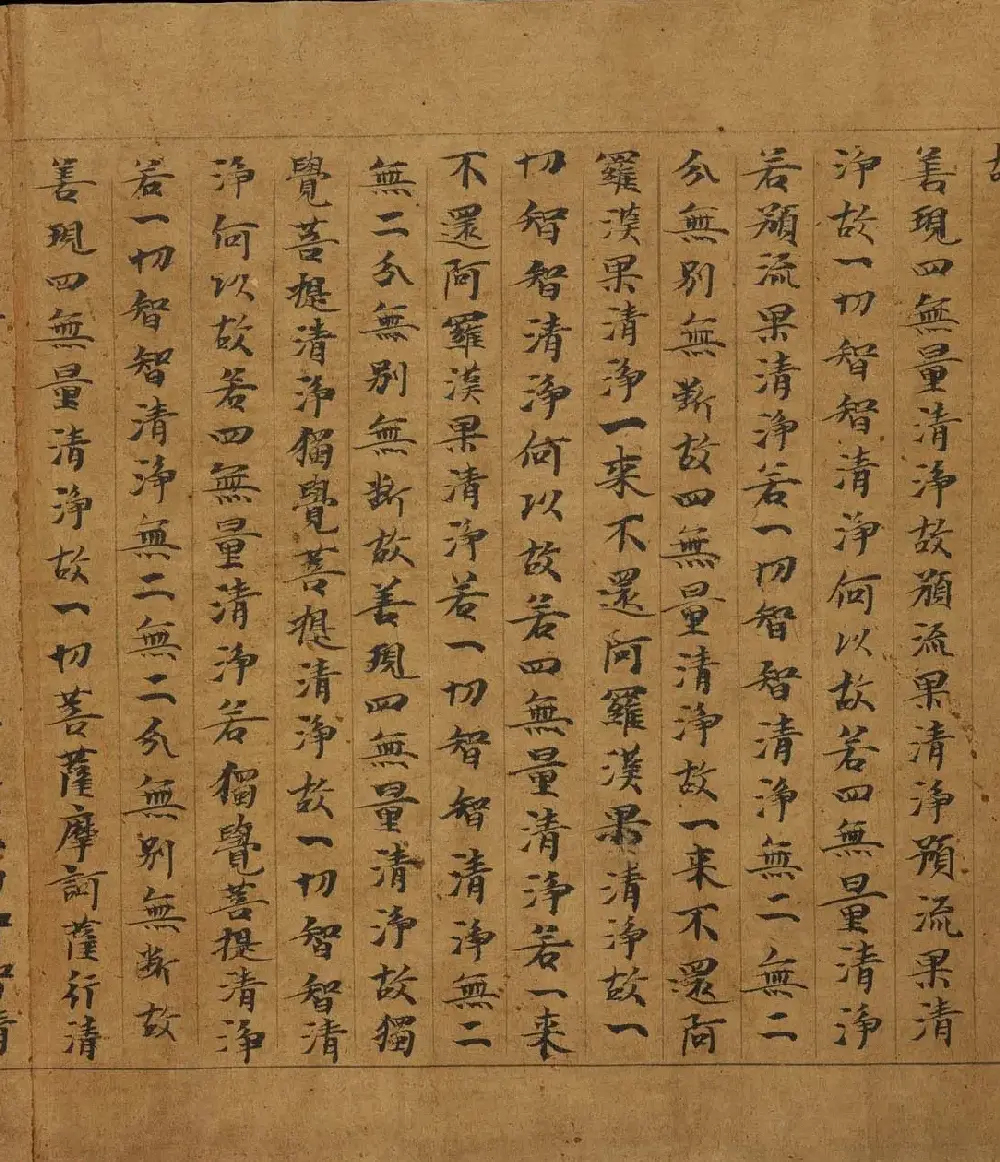 善現四無量清浄故預流果清浄預流果清
浄故一切智智清浄何以故若四無量清浄
若預流果清浄若一切智智清浄無二無二
分無別無断故四無量清浄故一来不還阿
羅漢果清浄一来不還阿羅漢果清浄故一
切智智清浄何以故若四無量清浄若一来
不還阿羅漢果清浄若一切智智清浄無二
無二分無別無断故善現四無量清浄故獨
覺菩提清浄獨覺菩提清浄故一切智智清
浄何以故若四無量清浄若獨覺菩提清浄
若一切智智清浄無二無二分無別無断故
善現四無量清浄故一切菩薩摩訶薩行清